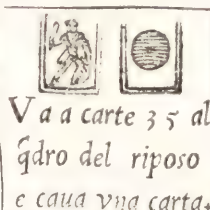 Va a carte 35 al
q̃dro del riposo
e caua vna carta.